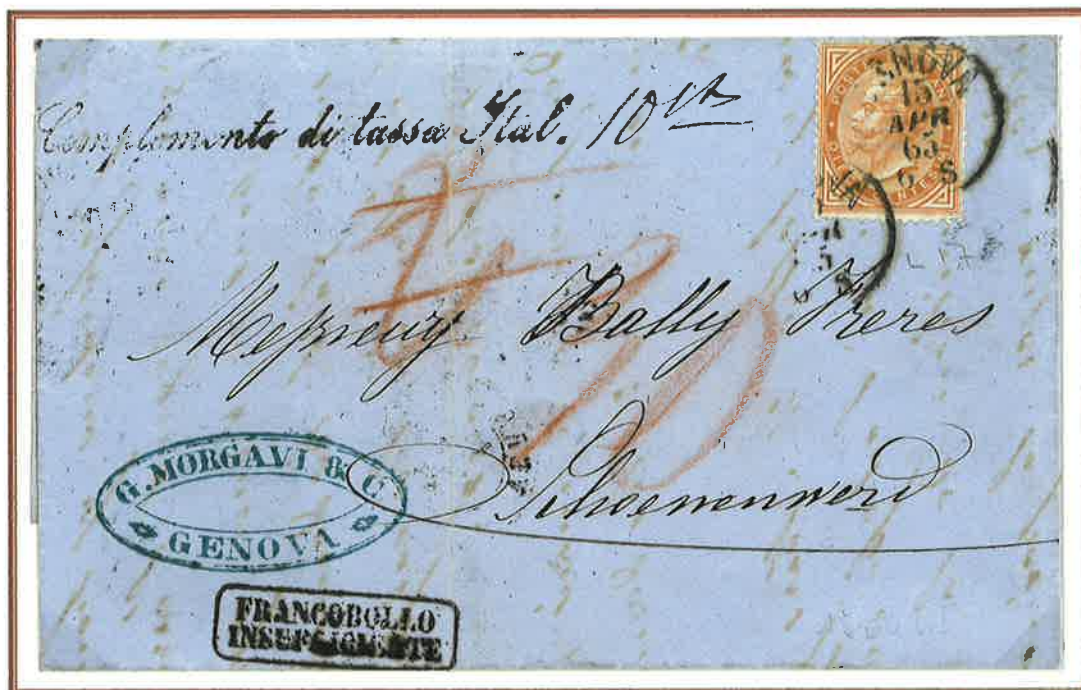 Complemento di tassa Ital. 10 cts
GENOVA
15
APR
65
6 S
Messieurs Bally Freres
Schoenenwerd
10
G. MORGAVI & C
GENOVA
FRANCOBOLLO
INSUFFICIENTE